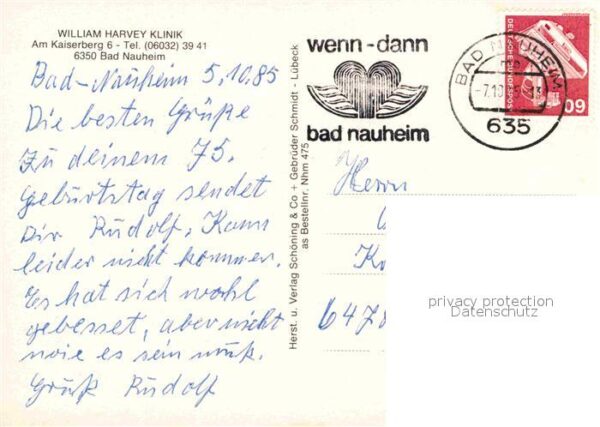 WILLIAM HARVEY KLINIK
Am Kaiserberg 6 - Tel. (06032) 39 41
6350 Bad Nauheim
Bad-Nauheim 5.10.85
Die besten Grüße
Zu deinem 75.
Geburtstag sendet
Dir Rudolf. Kann
leider nicht kommen.
Es hat sich wohl
gebesset, aber nicht
wie es sein muß.
Gruß Rudolf
Herst. u. Verlag Schöning & Co + Gebrüder Schmidt - Lübeck
as Bestellnr. Nhm 475
wenn-dann
bad nauheim
BAD NAUHEIM
-7.10
13
635
DEUTSCHE BUNDESPOST
60
Herrn
6478
privacy protection
Datenschutz